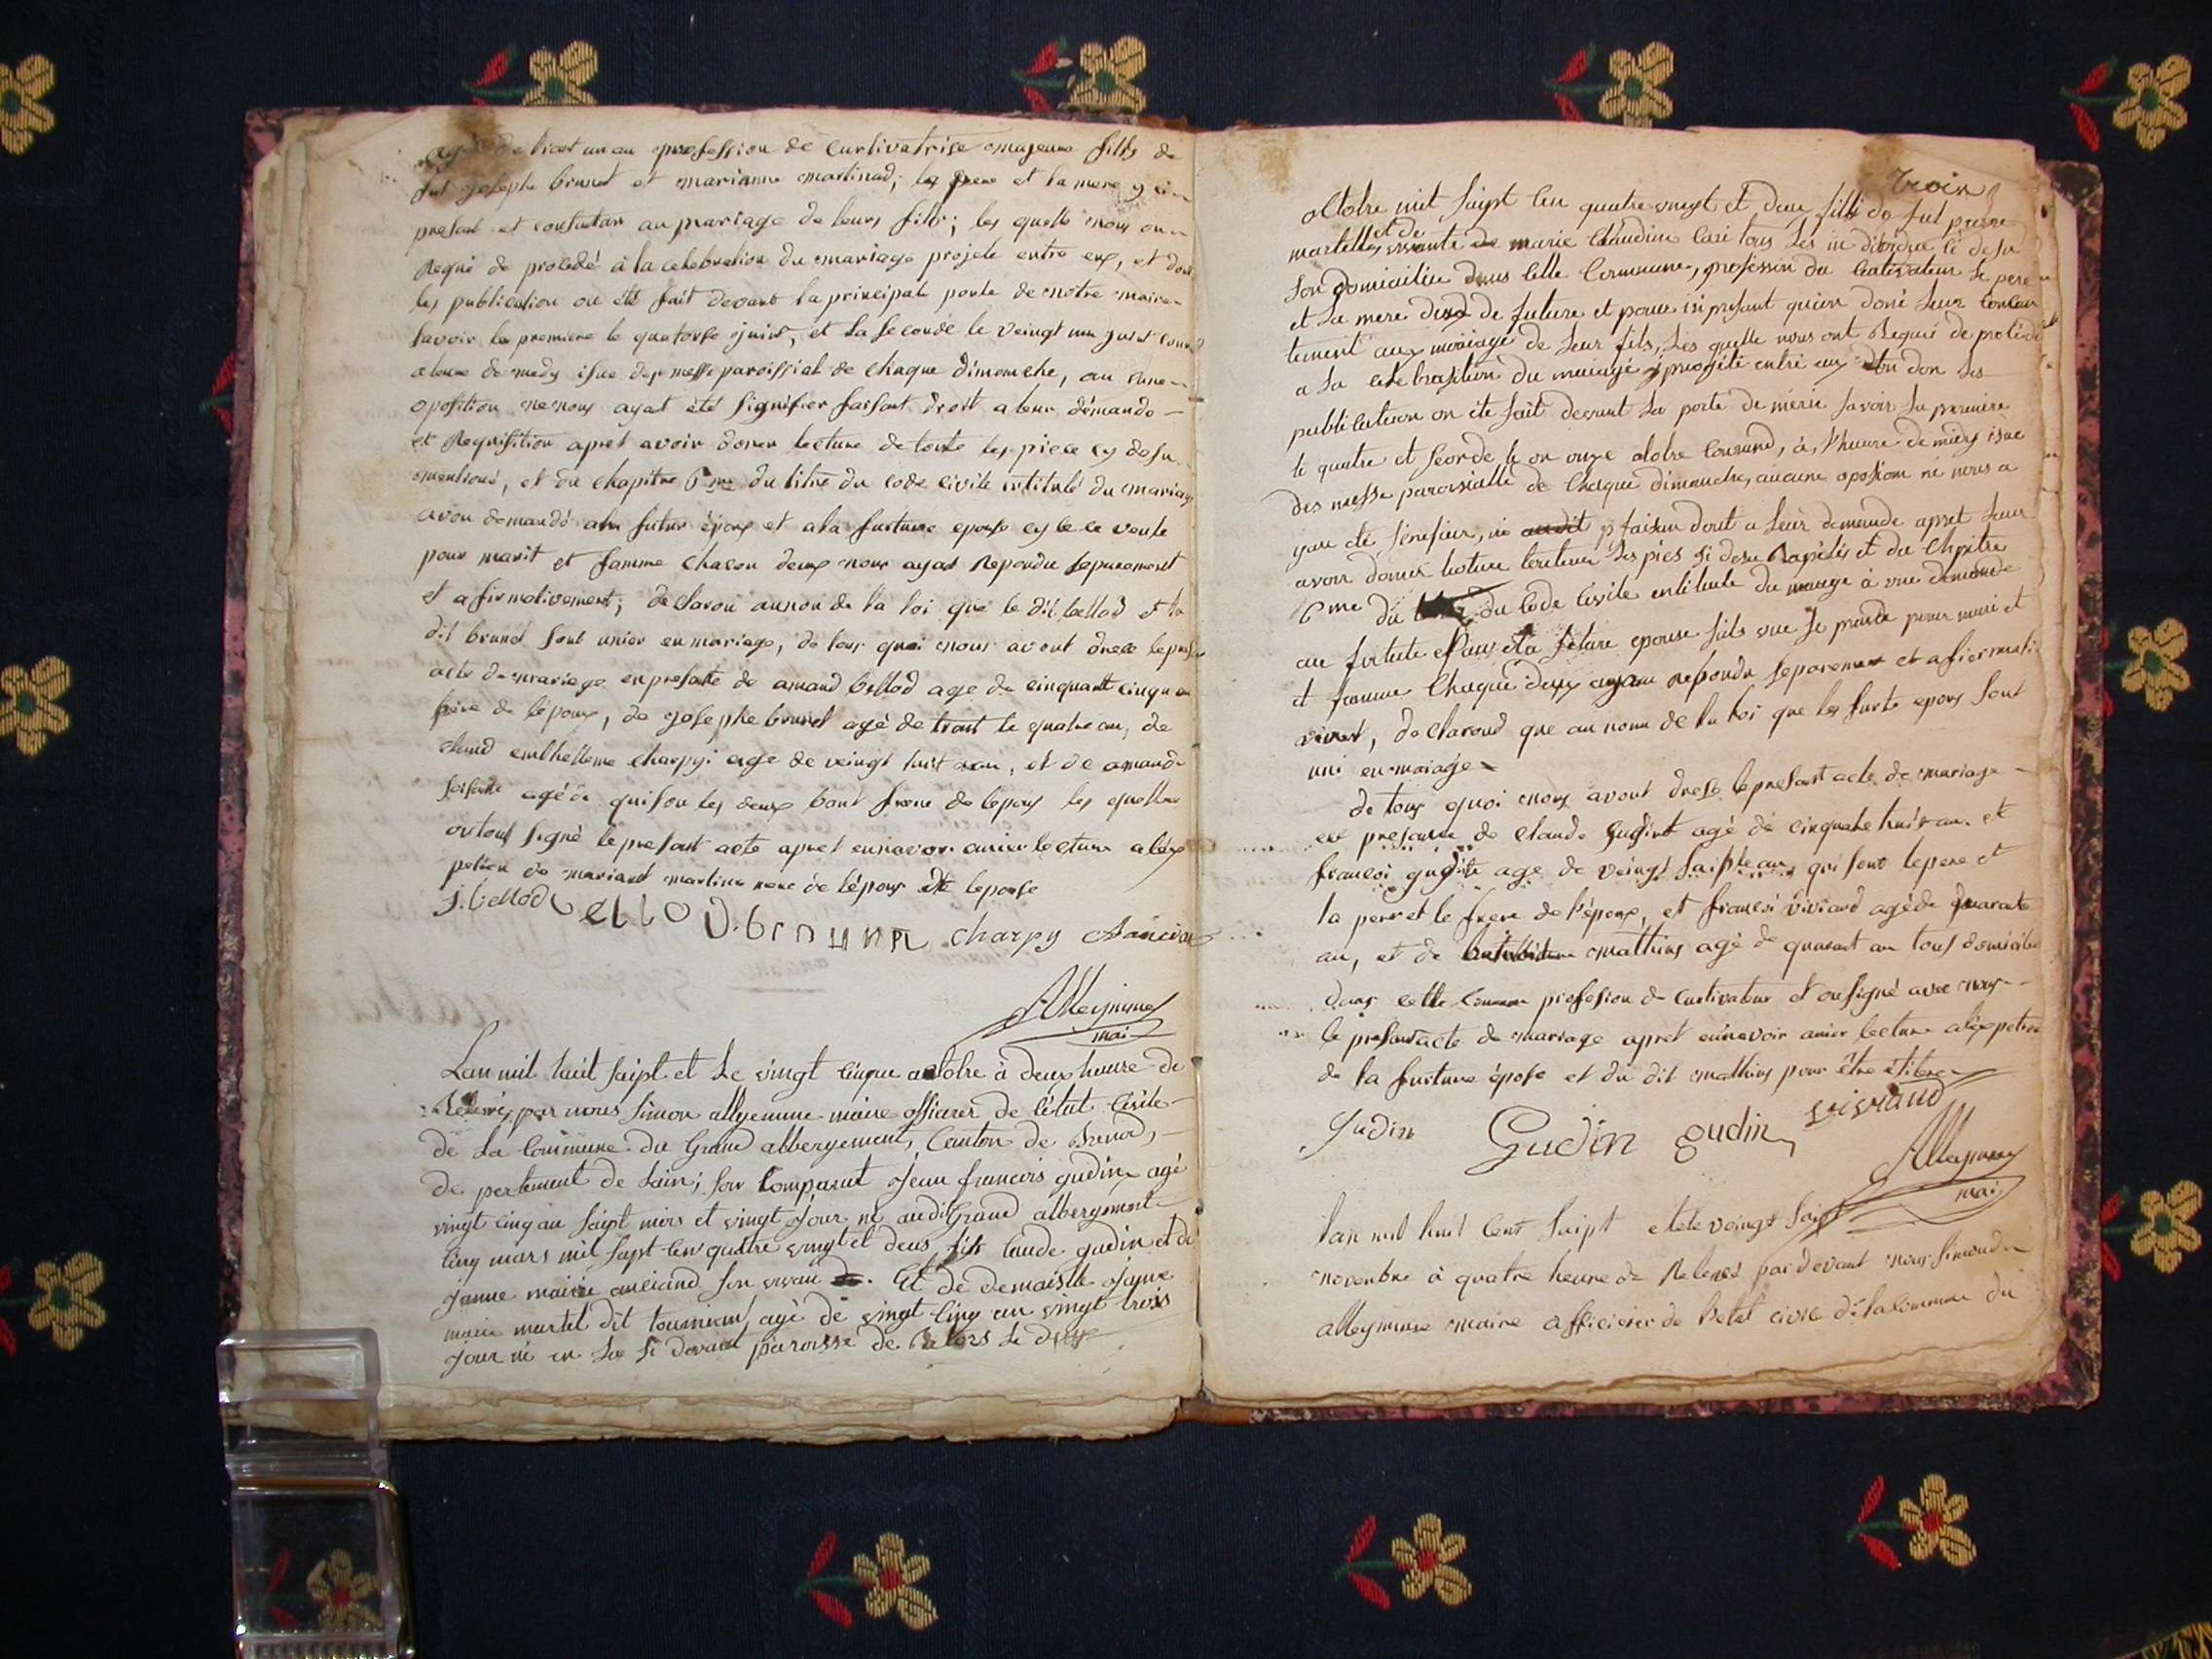 agée de trant un an profession de Curtivatrise majeure fille de
fut joseph brunet et marianne martinad; le pere et la mere y ci
presant et consantan au mariage de leurs fils; les quelle nous on
Requi de prosedé à la celebration du mariage projeté entre eux, et dont
les publication on été fait devant la principale porte de notre maire
savoir la premiere le quatorse juin, et la seconde le veingt un juin
a leure de medy isue des messe paroissial de chaque dimanche, au cune
oposition ne nous ayat été signifier faisant droit a leur démande
et Requisition apret avoir doner lecture de toute les piece cy desu
mentioné, et du chapitre 6me du titre du code civile intitulé du mariage
avon demandé au futur époux et a la furture epouse cy le ce veule
pour marit et famme chacon deux nous ayat Repondu separement
et afirmativement; declaron aunon de la loi que le dit bellod et la
dit brunet sont unier en mariage, de tous quoi nous avont dresé le presan
acte de mariage en presante de amand bellod age de cinquant cinque an
frere de l'epoux, de josephe brunet agé de trant te quatre an, de
claud charpy age de veingt huit an, et de amand
agé de qui son les deux bont frere de l'epoux les quelle
ontous signé le presant acte apret en navoir aurier lecture a lexe
petion de mariant martina mere de l'épouse
j. bellod bellod. brunet charpy
Alleymme
mai
Lan mil huit saipt et le vingt cinque actobre à deux heure de
Relevé, par nous simon alleyemme maire officier de l'état civile
de la Commune du Grand abbergement, Canton de Brenod,
de partement de Lain; son Comparut jean francois gudin agé
vingt cinq an saipt mois et vingt jour né audit Grand albergement
cinq mars mil sapt cen quatre vingt et deus, fils Claude gudin et de
janne mairie anciand son vivan. Et de demaiselle jayne
marie martel dit tournieur agé de vingt cinq an vingt trois
jour né en la si devant paroisse de le deux
trois
actobre mit saipt cen quatre vingt et deu fille de fut pierre
et de
martelle, vivante de marie claudine tous les
son domicilie dans celle Commune, profession de Cultivateur le pere
et la mere de future et poux isi presant qui on doné leur consan
tement aux mariage de leur fils, les quelle nous ont Requie de procédé
a la celebration du mariage projité entre eux don les
publication on éte fait devant la porte de mérie savoir la premiere
le quatre et seconde le on onze octobre Courand, à l'heure de midy isue
des messe paroisialle de chaque dimanche, aucune oposiom né nous a
yan eté sinifier, ni faisan droit a leur demande apret leur
avoir donner lecture les pies si desu Rapelés et du Chpitre
6me du du Code Civile entitule du mariage à
au furture epoux et la future epouse sils vue se prande pour mari et
et famme Chaque deux ayan repondu separemer et afiermati
vivent, declarond que au nom de la loi que les furte epoux sont
uni en mariage
de tous quoi nous avont dresé le presant acte de mariage
en presance de claude Gudint agé de cinquate huit an. et
francoi gudin age de veingt saipte an, qui sont le pere et
la pere et le frere de l'époux, et francoi viviand agé de quarante
an, et de mathius agé de quarant an tous domicilie
dans cette commune profesion de Curtivateur et onsigné avec nous
le presant acte de mariage apret en navoir aurier lecture a lexpetion
de la furture épose et du dit mathius pour être
Gudin Gudin gudin viviaud
Alleymme
mai
lan mil huit cent saipt et le veingt saipt
novenbre à quatre heure de Relevés pardevant nous simond
alleymme maire afficierier de l'etat civile de la commune du